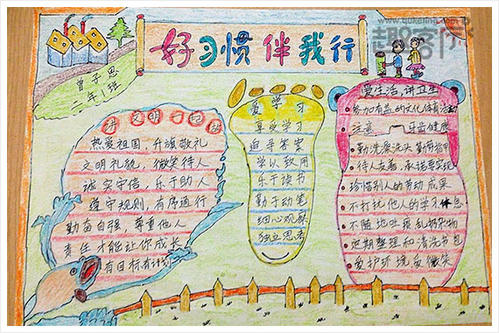 www.qukeling.com
趣客
好习惯伴我行
曾子思
二年1班
热爱祖国,升旗敬礼
文明礼貌,微笑待人
诚实守信,乐于助人
遵守规则,有序通行
勤奋自强 尊重他人
责任才能让你成长
有目标有计划
爱学习
享受学习
追寻答案
学以致用
乐于读书
勤于动笔
细心观察
独立思考
爱生活,讲卫生
参加有益的文化体育活
注意 牙齿健康
勤洗澡洗头 勤剪指甲
待人友善,承诺要实现
珍惜别人的劳动成果
不打扰他人的学习 休息
不随地吐痰乱扔杂物
定期整理和清洗书包
爱护环境多微笑